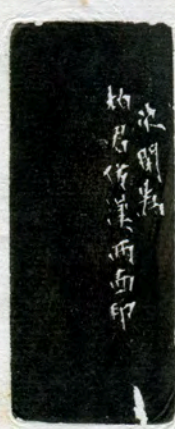 次閒為
柏君仿漢兩面印